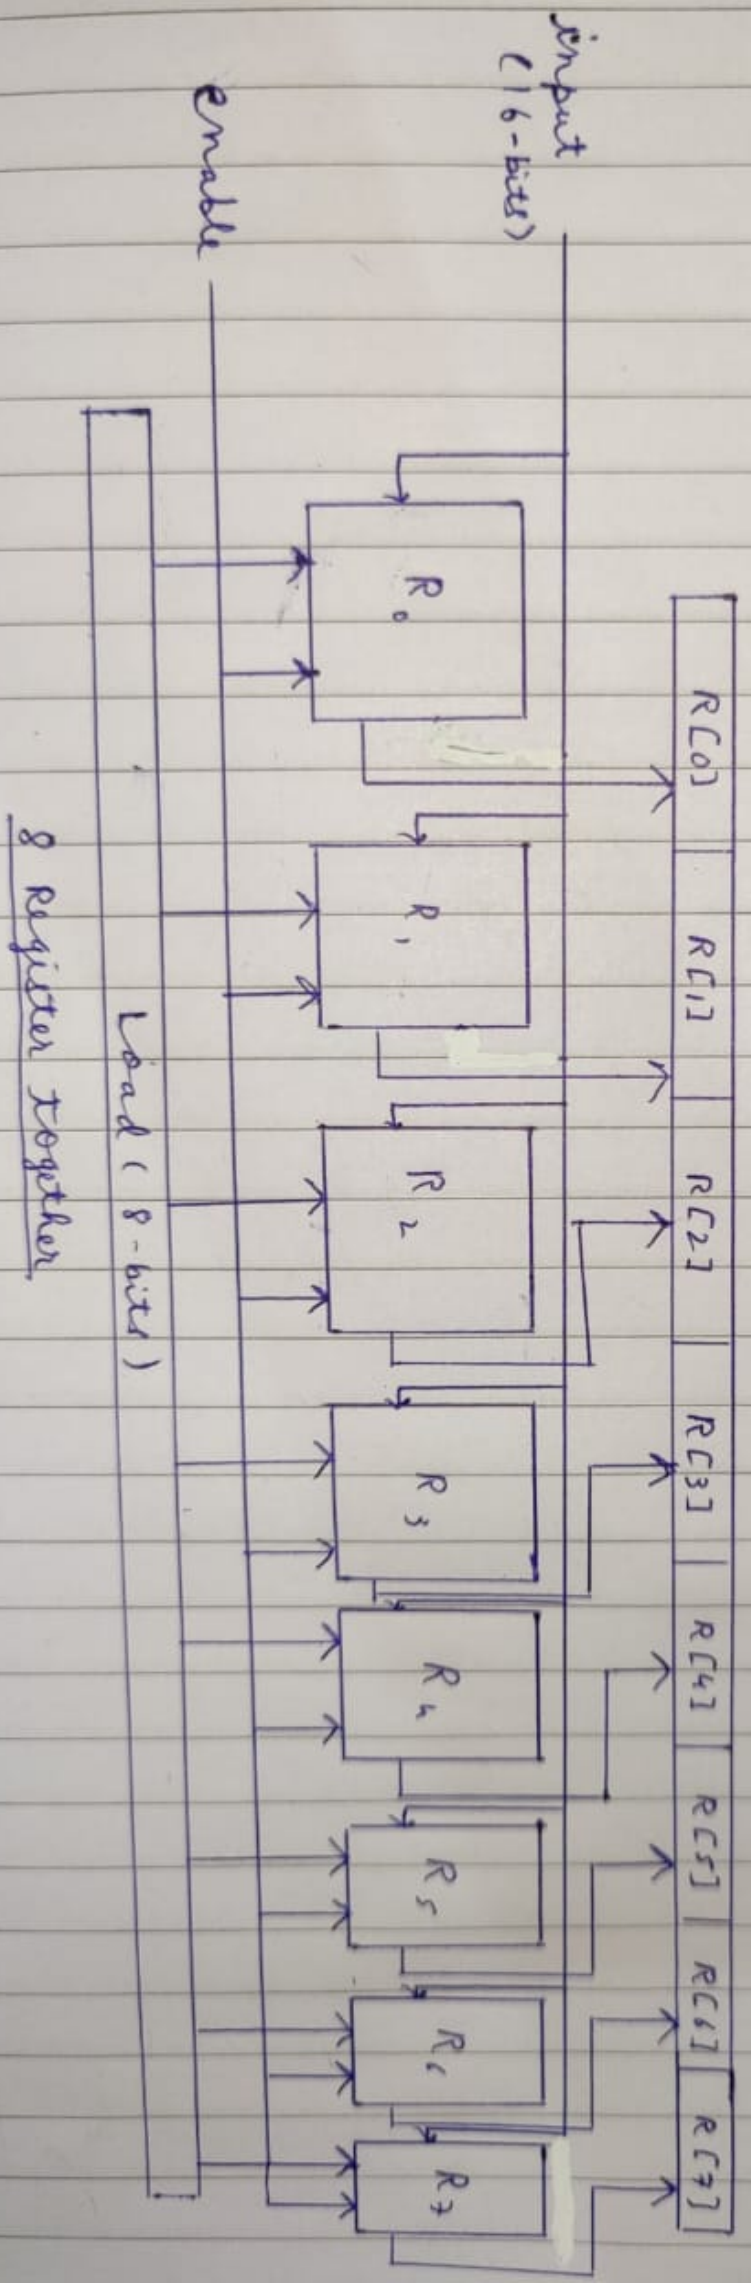 R[0] R[1] R[2] R[3] R[4] R[5] R[6] R[7]
input
(16-bits)
R0 R1 R2 R3 R4 R5 R6 R7
enable
Load (8-bits)
8 Register together